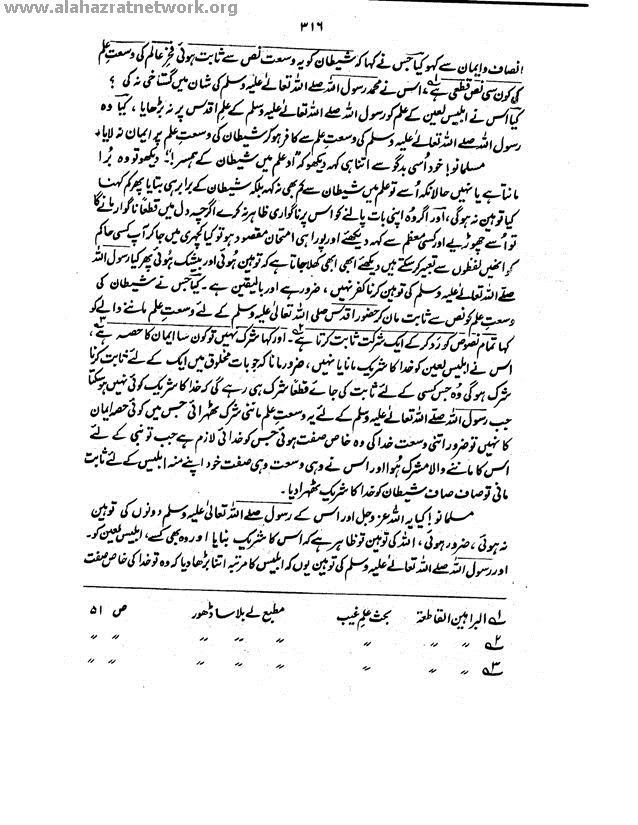 www.alahazratnetwork.org
۳۱۶
انصاف و ایمان سے کہو کیا جس نے کہا کہ شیطان کو یہ وسعت نص سے ثابت ہوئی فخرِ عالم کی وسعتِ علم
کی کون سی نص قطعی ہے، اس نے محمد رسول اللہ صلے اللہ تعالٰے علیہ وسلم کی شان میں گستاخی نہ کی ؟
کیا اس نے ابلیس لعین کے علم کو رسول اللہ صلے اللہ تعالٰے علیہ وسلم کے علمِ اقدس پر نہ بڑھایا ، کیا وہ
رسول اللہ صلے اللہ تعالٰے علیہ وسلم کی وسعتِ علم سے کافر ہو کر شیطان کی وسعتِ علم پر ایمان نہ لایا۔
مسلمانو! خود اُسی بدگو سے اتنا ہی کہہ دیکھو کہ "او علم میں شیطان کے ہمسر!"، دیکھو تو وہ بُرا
مانتا ہے یا نہیں حالانکہ اُسے تو علم میں شیطان سے کم بھی نہ کہا بلکہ شیطان کے برابر ہی بتایا پھر کم کہنا
کیا توہین نہ ہوگی، اور اگر وہ اپنی بات پالنے کو اس پر ناگواری ظاہر نہ کرے اگرچہ دل میں قطعاً ناگوار مانے گا
تو اُسے چھوڑیے اور کسی معظم سے کہہ دیکھئے اور پورا ہی امتحان مقصود ہو تو کیا کچہری میں جا کر آپ کسی حاکم
کو انہیں لفظوں سے تعبیر کر سکتے ہیں دیکھئے ابھی ابھی کھلا جاتا ہے کہ توہین ہوئی اور بیشک ہوئی پھر کیا رسول اللہ
صلے اللہ تعالٰے علیہ وسلم کی توہین کرنا کفر نہیں ، ضرور ہے اور بالیقین ہے۔ کیا جس نے شیطان کی
وسعتِ علم کو نص سے ثابت مان کر حضور اقدس صلی اللہ تعالٰی علیہ وسلم کے لئے وسعتِ علم ماننے والے کو
کہا تمام نصوص کو رَد کر کے ایک شرک ثابت کرتا ہے۲ اور کہا شرک نہیں تو کون سا ایمان کا حصہ ہے۳ ،
اس نے ابلیس لعین کو خدا کا شریک مانا یا نہیں ، ضرور مانا کہ جو بات مخلوق میں ایک کے لئے ثابت کرنا
شرک ہوگی وُہ جس کسی کے لئے ثابت کی جائے قطعاً شرک ہی رہے گی کہ خدا کا شریک کوئی نہیں ہو سکتا
جب رسول اللہ صلے اللہ تعالٰے علیہ وسلم کے لئے یہ وسعتِ علم ماننی شرک ٹھہرائی جس میں کوئی حصہ ایمان
کا نہیں تو ضرور اتنی وسعت خدا کی وہ خاص صفت ہوئی جس کو خدائی لازم ہے جب تو نبی کے لئے
اس کا ماننے والا مشرک ہُوا اور اس نے وہی وسعت وہی صفت خود اپنے منہ ابلیس کے لئے ثابت
مانی تو صاف صاف شیطان کو خدا کا شریک ٹھہرا دیا۔
مسلمانو! کیا یہ اللہ عزوجل اور اس کے رسول صلے اللہ تعالٰی علیہ وسلم دونوں کی توہین
نہ ہوئی ، ضرور ہوئی ، اللہ کی توہین تو ظاہر ہے کہ اس کا شریک بنایا اور وہ بھی کسے، ابلیس لعین کو۔
اور رسول اللہ صلے اللہ تعالٰے علیہ وسلم کی توہین یوں کہ ابلیس کا مرتبہ اتنا بڑھا دیا کہ وہ تو خدا کی خاص صفت
۱؎ البراہین القاطعۃ بحث علم غیب مطبع لے بلاسا ڈھور ص ۵۱
۲؎ " " " " " " " "
۳؎ " " " " " " " "